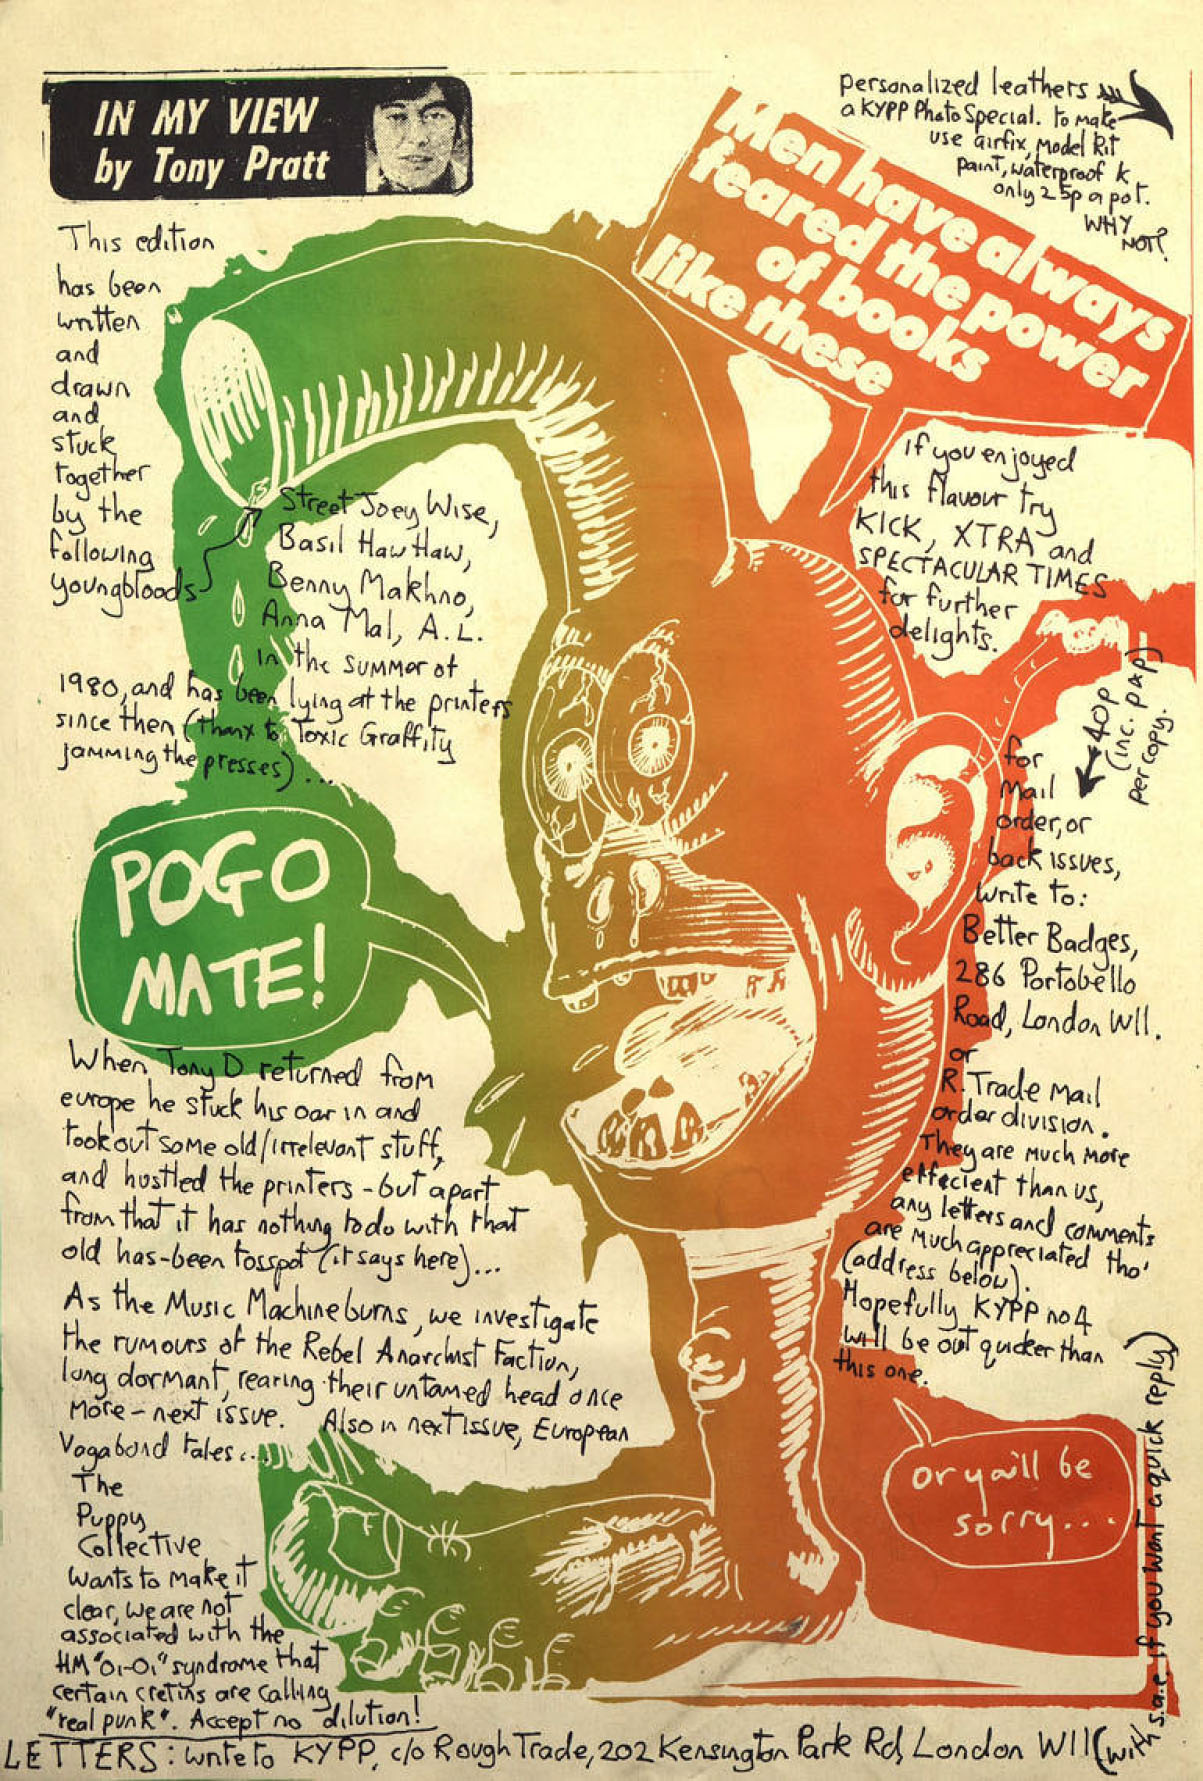 IN MY VIEW
by Tony Pratt
personalized leathers
a KYPP Photo Special. to make
use airfix, model kit
paint, waterproof k
only 25p a pot.
WHY
NOT?
Men have always
feared the power
of books
like these
This edition
has been
written
and
drawn
and
stuck
together
by the
following
youngbloods
Street Joey Wise,
Basil Haw Haw,
Benny Makhno,
Anna Mal, A.L.
in the summer of
1980, and has been lying at the printers
since then (thanx to Toxic Graffity
jamming the presses)...
POGO
MATE!
When Tony D returned from
europe he stuck his oar in and
took out some old/irrelevant stuff,
and hustled the printers - but apart
from that it has nothing to do with that
old has-been tosspot (it says here)...
As the Music Machine burns, we investigate
the rumours of the Rebel Anarchist Faction,
long dormant, rearing their untamed head once
more - next issue. Also in next issue, European
Vagabond tales...
The
Puppy
Collective
wants to make it
clear, we are not
associated with the
HM "oi-oi" syndrome that
certain cretins are calling
"real punk". Accept no dilution!
If you enjoyed
this flavour try
KICK, XTRA and
SPECTACULAR TIMES
for further
delights.
40p
(inc. p&p)
per copy.
for
mail
order, or
back issues,
write to:
Better Badges,
286 Portobello
Road, London W11.
or
R. Trade mail
order division.
They are much more
effecient than us,
any letters and comments
are much appreciated tho'
(address below).
Hopefully KYPP no 4
will be out quicker than
this one.
or you'll be
sorry...
LETTERS: write to KYPP, c/o Rough Trade, 202 Kensington Park Rd, London W11 (with
s.a.e. if you want a quick reply)